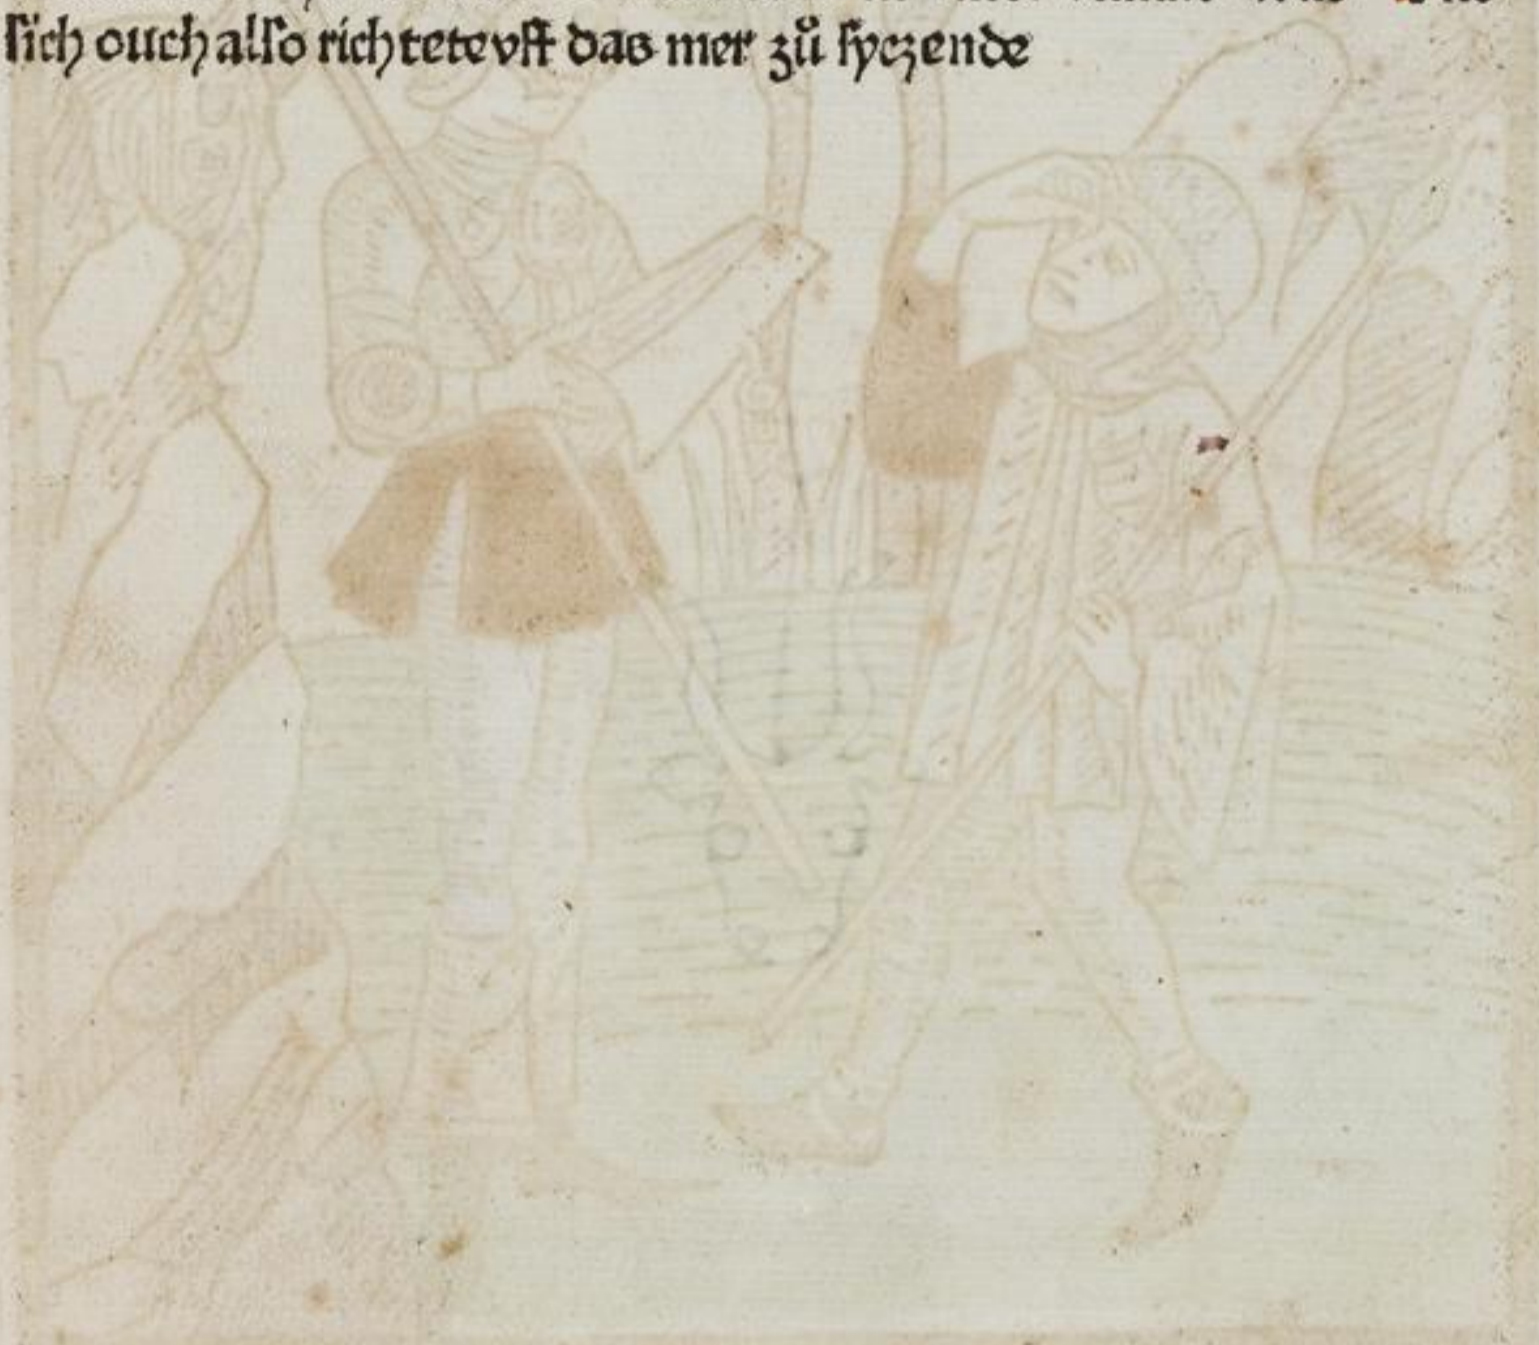 sich ouch allso richtete vff das mer zů syczende